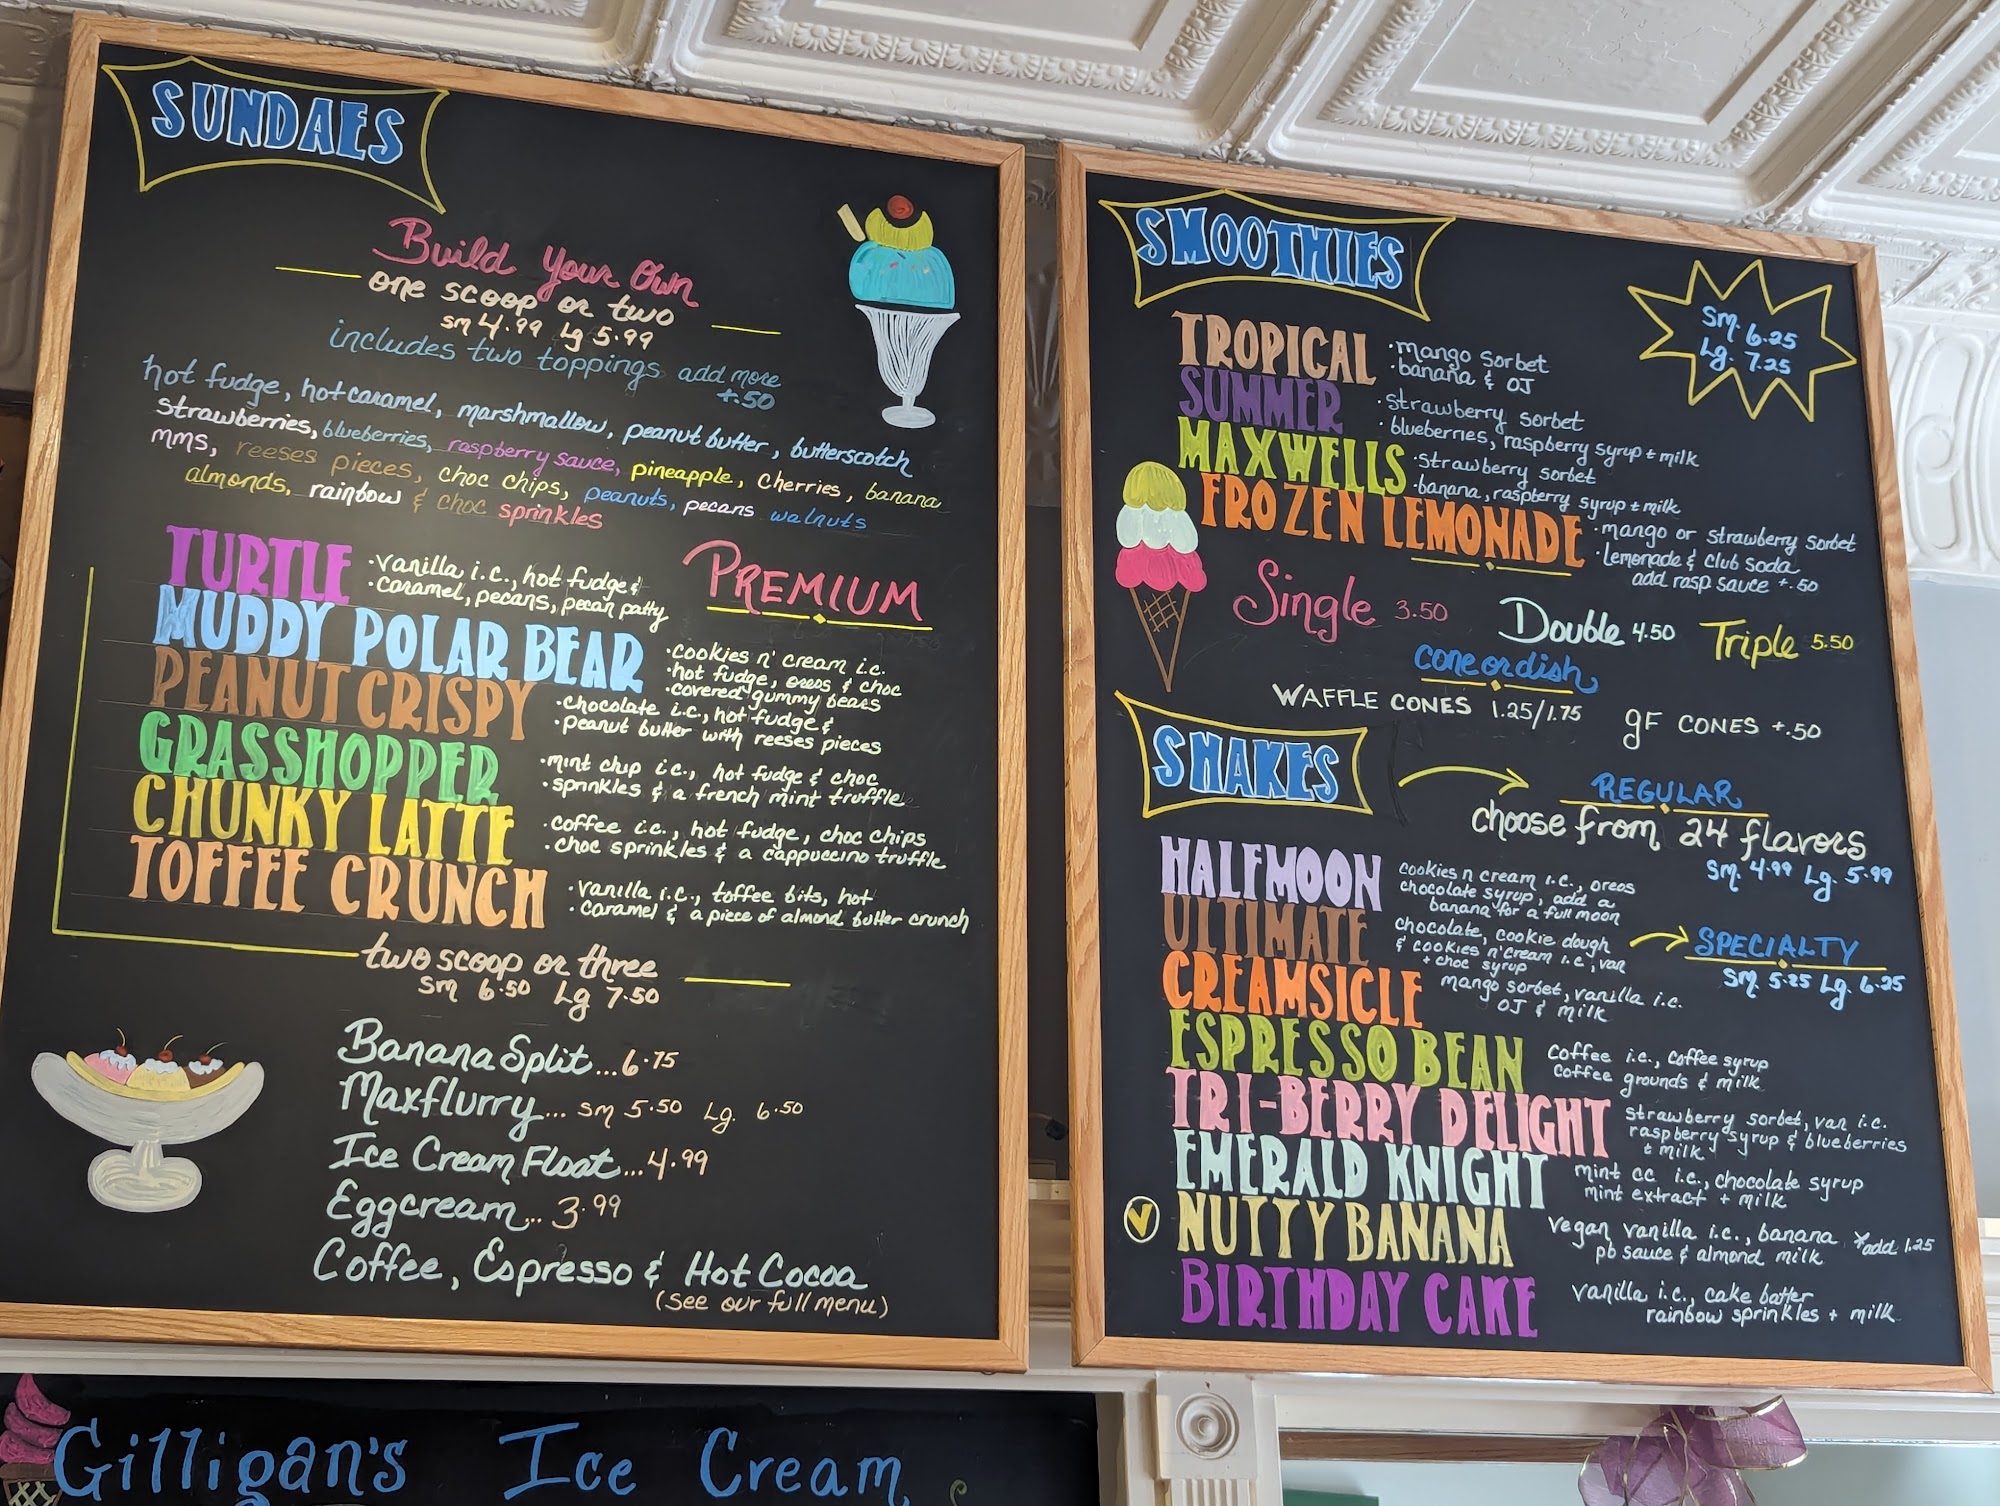 SUNDAES
Build Your Own
one scoop or two
sm 4.99 Lg 5.99
includes two toppings add more
+.50
hot fudge, hot caramel, marshmallow, peanut butter, butterscotch
strawberries, blueberries, raspberry sauce, pineapple, cherries, banana
mms, reeses pieces, choc chips, peanuts, pecans walnuts
almonds, rainbow & choc sprinkles
PREMIUM
TURTLE
•vanilla i.c., hot fudge &
•caramel, pecans, pecan patty
MUDDY POLAR BEAR
•cookies n' cream i.c.
•hot fudge, oreos & choc
•covered gummy bears
PEANUT CRISPY
•chocolate i.c., hot fudge &
•peanut butter with reeses pieces
GRASSHOPPER
•mint chip i.c., hot fudge & choc
•sprinkles & a french mint truffle
CHUNKY LATTE
•coffee i.c., hot fudge, choc chips
•choc sprinkles & a cappuccino truffle
TOFFEE CRUNCH
•vanilla i.c., toffee bits, hot
•caramel & a piece of almond butter crunch
two scoop or three
Sm 6.50 Lg 7.50
Banana Split...6.75
Maxflurry... sm 5.50 Lg. 6.50
Ice Cream Float...4.99
Eggcream... 3.99
Coffee, Espresso & Hot Cocoa
(see our full menu)
SMOOTHIES
Sm. 6.25
Lg. 7.25
TROPICAL
•mango sorbet
•banana & OJ
SUMMER
•strawberry sorbet
•blueberries, raspberry syrup + milk
MAXWELLS
•strawberry sorbet
•banana, raspberry syrup + milk
FROZEN LEMONADE
•mango or strawberry sorbet
•lemonade & club soda
add rasp sauce +.50
Single 3.50 Double 4.50 Triple 5.50
cone or dish
WAFFLE CONES 1.25/1.75 gF CONES +.50
SHAKES
REGULAR
choose from 24 flavors
Sm. 4.99 Lg. 5.99
HALFMOON
cookies n cream i.c., oreos
chocolate syrup, add a
banana for a full moon
ULTIMATE
chocolate, cookie dough
& cookies n'cream i.c, van
+ choc syrup
SPECIALTY
Sm. 5.25 Lg. 6.25
CREAMSICLE
mango sorbet, vanilla i.c.
OJ & milk
ESPRESSO BEAN
Coffee i.c., coffee syrup
coffee grounds & milk
TRI-BERRY DELIGHT
strawberry sorbet, van i.c.
raspberry syrup & blueberries
+ milk
EMERALD KNIGHT
mint cc i.c., chocolate syrup
mint extract + milk
V NUTTY BANANA
vegan vanilla i.c., banana *add 1.25
pb sauce & almond milk
BIRTHDAY CAKE
vanilla i.c., cake batter
rainbow sprinkles + milk
Gilligan's Ice Cream